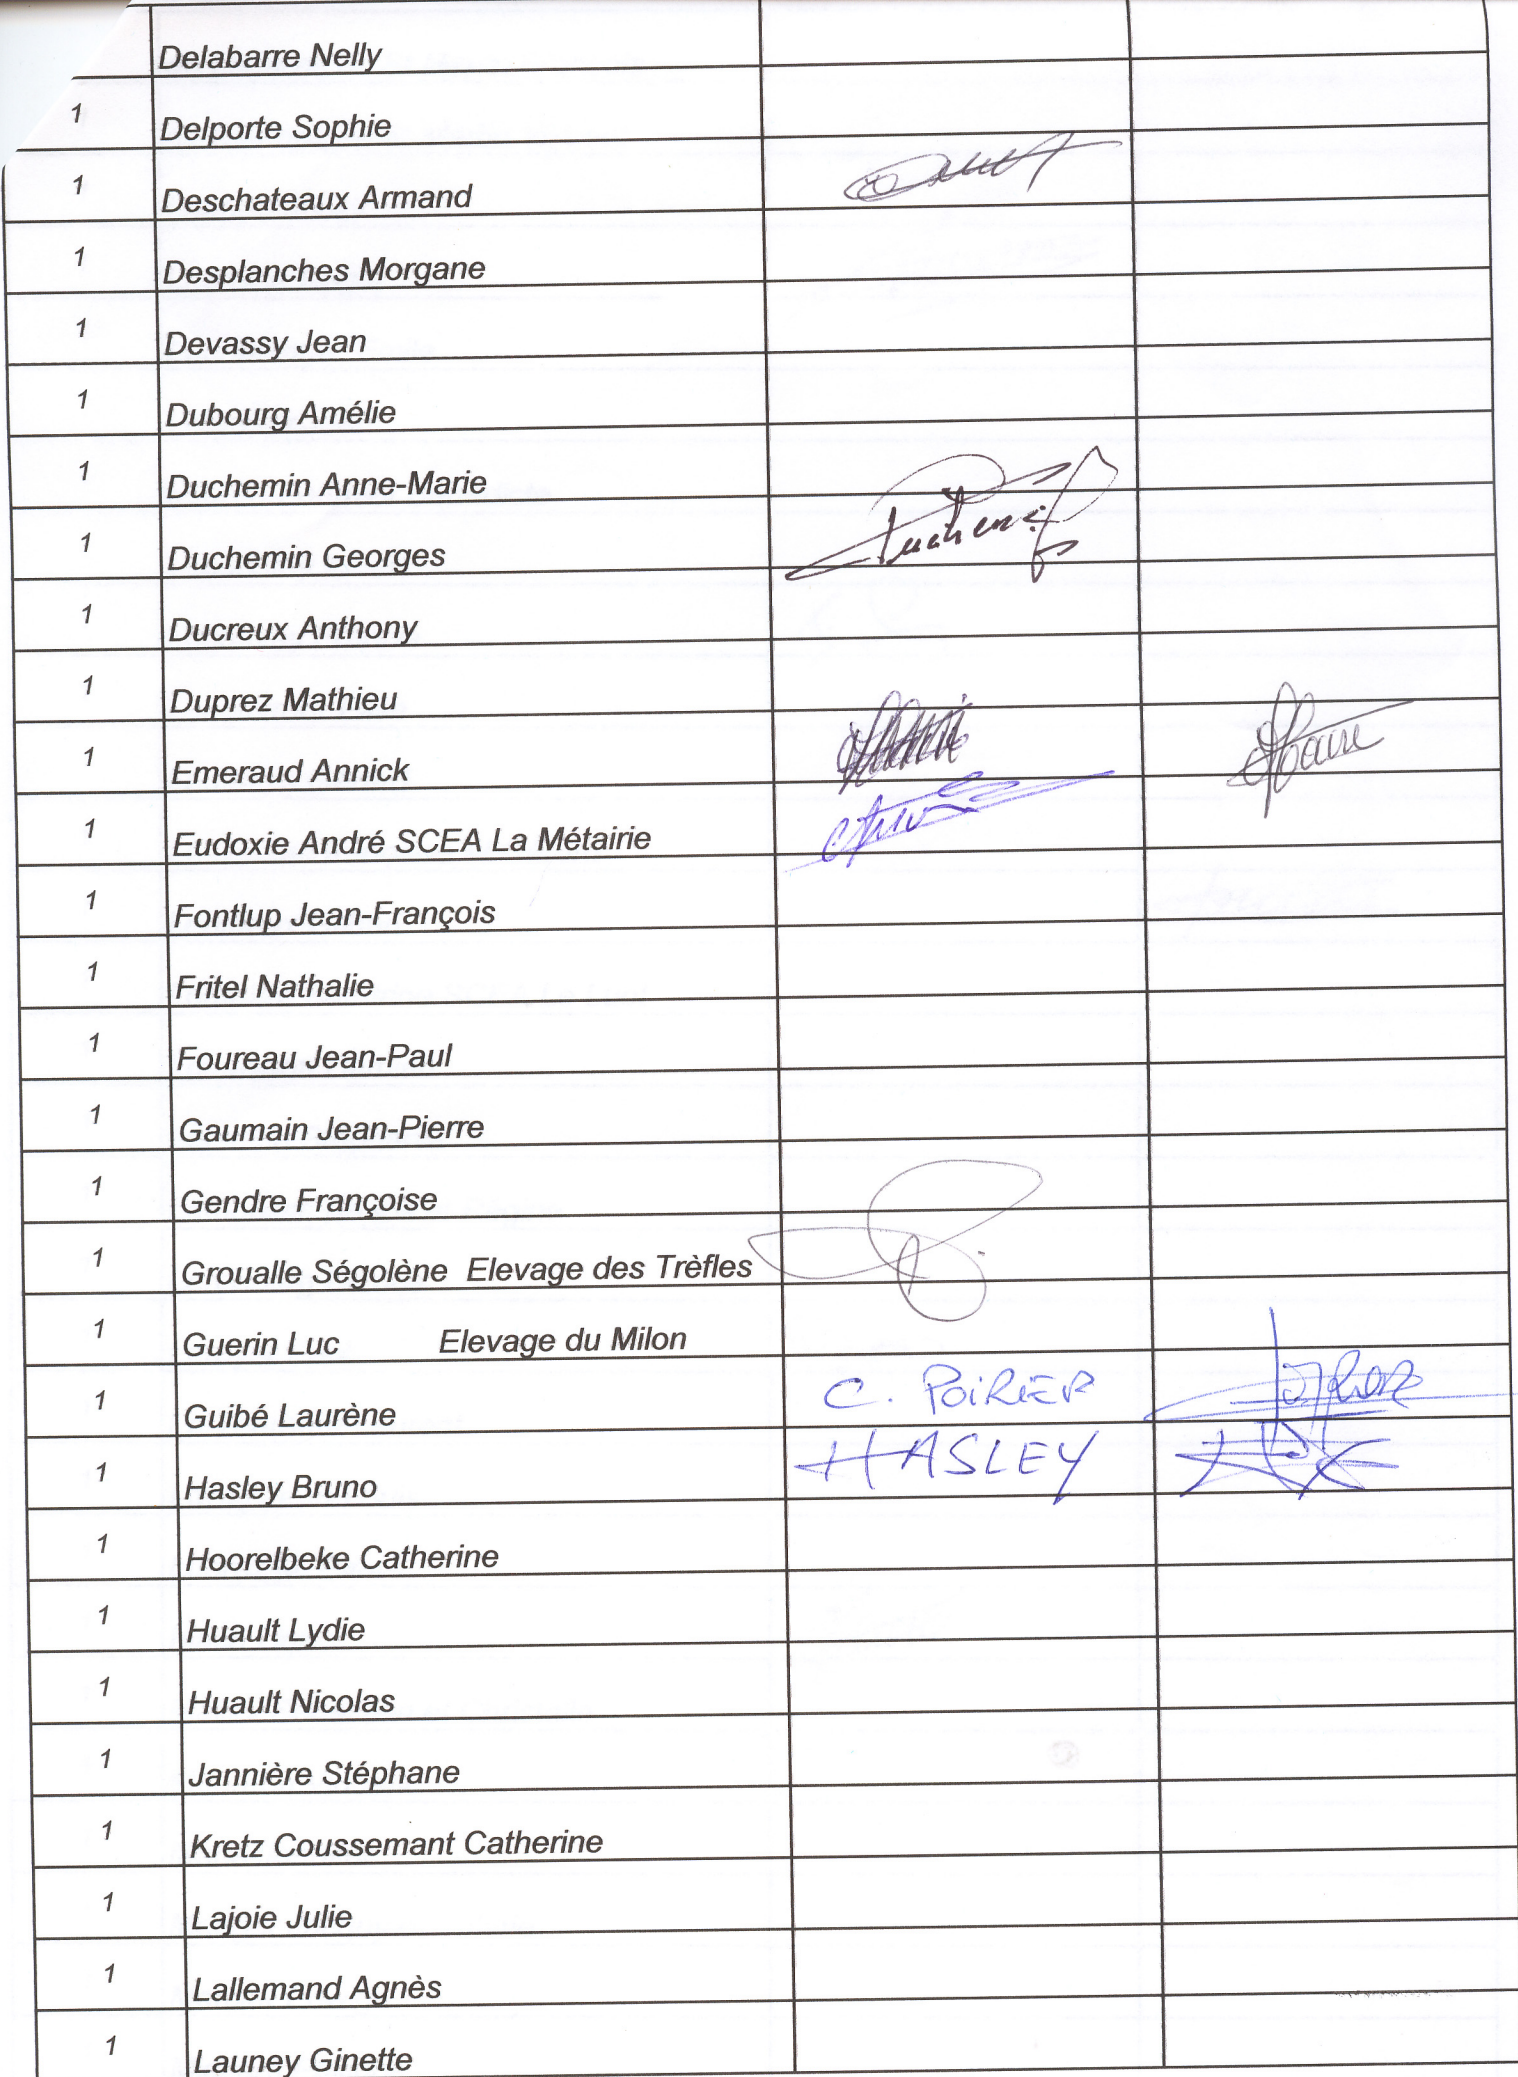 Delabarre Nelly
1 Delporte Sophie
1 Deschateaux Armand
1 Desplanches Morgane
1 Devassy Jean
1 Dubourg Amélie
1 Duchemin Anne-Marie
1 Duchemin Georges
1 Ducreux Anthony
1 Duprez Mathieu
1 Emeraud Annick
1 Eudoxie André SCEA La Métairie
1 Fontlup Jean-François
1 Fritel Nathalie
1 Foureau Jean-Paul
1 Gaumain Jean-Pierre
1 Gendre Françoise
1 Groualle Ségolène Elevage des Trèfles
1 Guerin Luc Elevage du Milon
1 Guibé Laurène C. POIRIER
1 Hasley Bruno HASLEY
1 Hoorelbeke Catherine
1 Huault Lydie
1 Huault Nicolas
1 Jannière Stéphane
1 Kretz Coussemant Catherine
1 Lajoie Julie
1 Lallemand Agnès
1 Launey Ginette